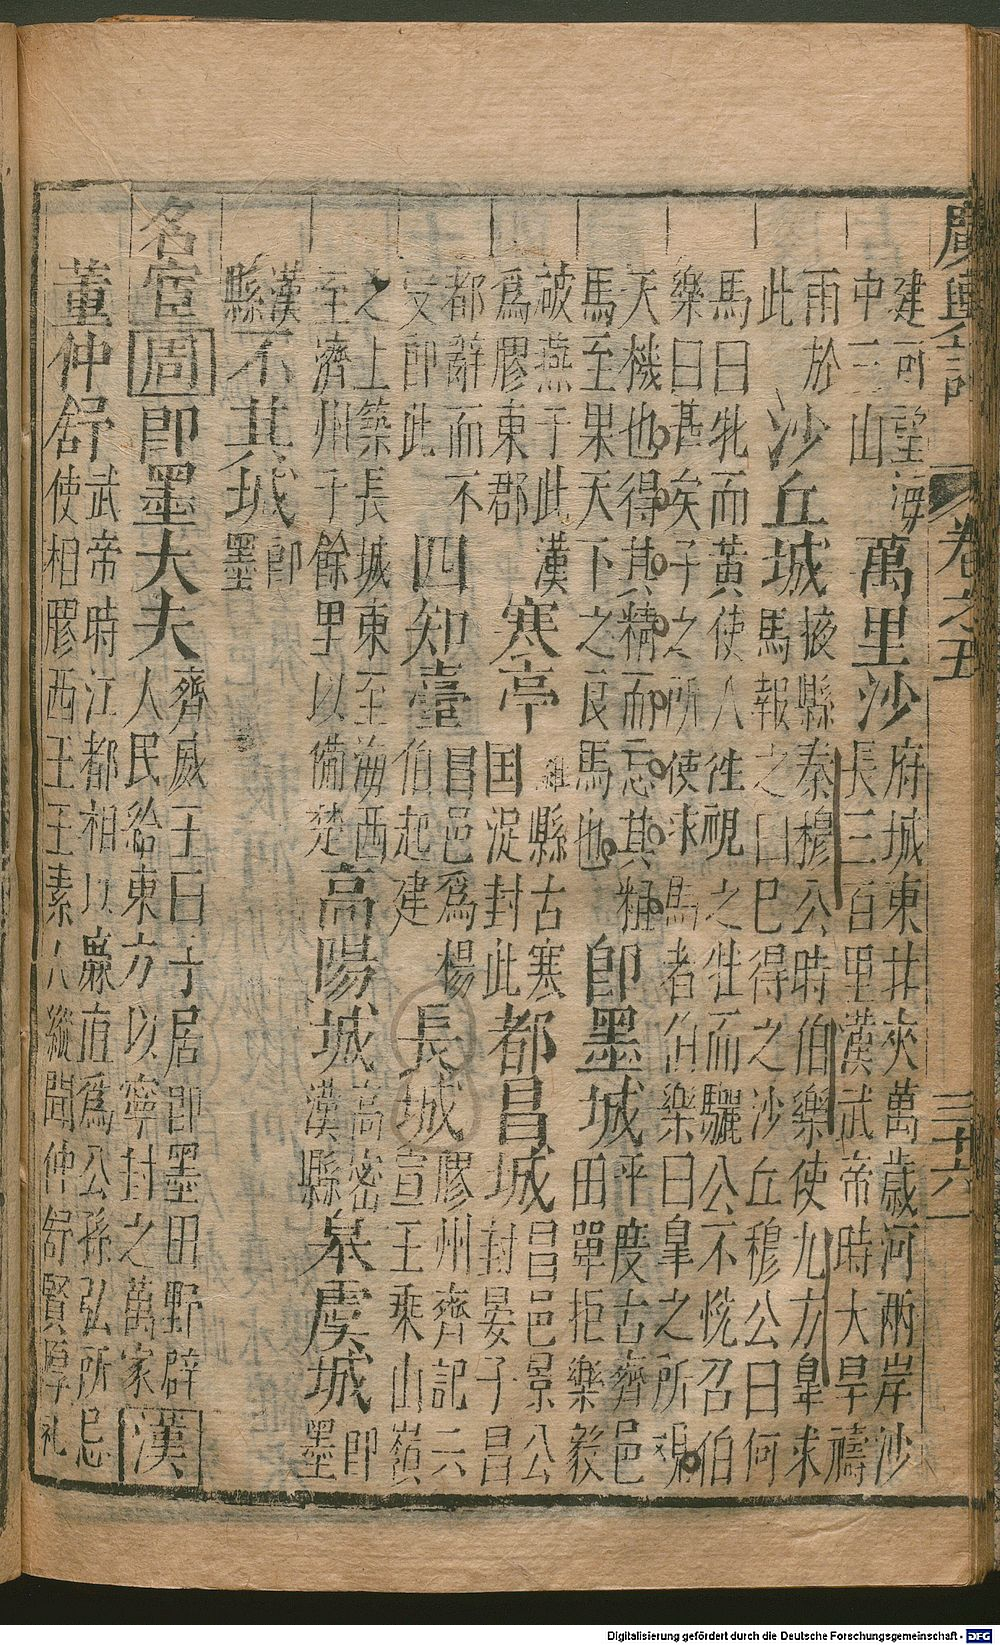 廣輿記 卷之五 三十六
建可望海中三山 萬里沙 府城東北夾萬歲河兩岸沙長三百里漢武帝時大旱禱
雨於此 沙丘城 掖縣秦穆公時伯樂使九方皐求馬報之曰已得之沙丘穆公曰何
馬曰牝而黃使人往視之牡而驪公不悅召伯樂曰甚矣子之所使求馬者伯樂曰皐之所觀
天機也得其精而忘其粗馬至果天下之良馬也 即墨城 平度古齊邑田單拒樂毅
破燕于此漢爲膠東郡 寒亭 濰縣古寒国浞封此 都昌城 昌邑景公封晏子昌
都辭而不受即此 四知臺 昌邑爲楊伯起建 長城 膠州齊記云宣王乘山嶺
之上築長城東至海西至濟州千餘里以備楚 高陽城 高密漢縣 皋虞城 即墨
漢縣 不其城 即墨
名宦 周 即墨大夫 齊威王曰子居即墨田野辟人民給東方以寧封之萬家 漢
董仲舒 武帝時江都相以廉直爲公孫弘所忌使相膠西王王素人縱聞仲舒賢厚礼
Digitalisierung gefördert durch die Deutsche Forschungsgemeinschaft - DFG